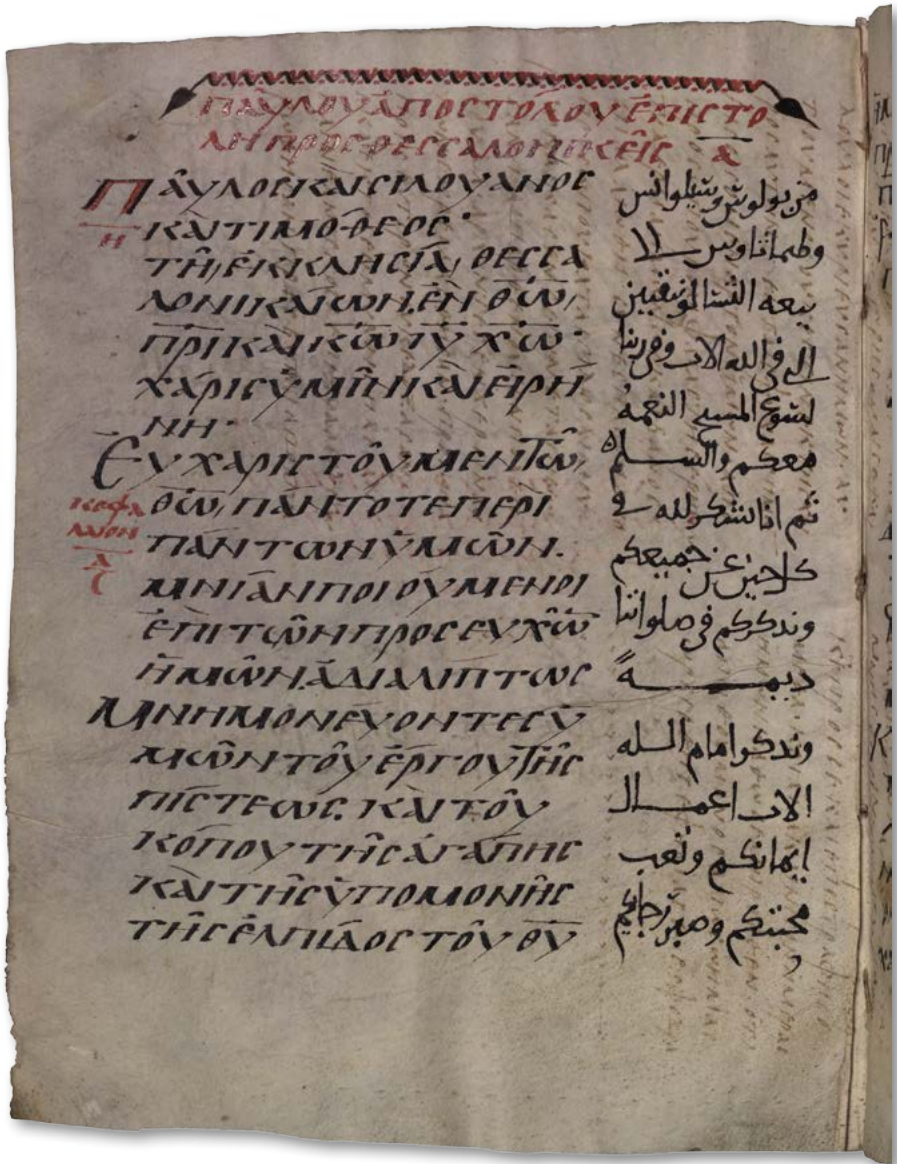 ΠΑΥΛΟΥ ΑΠΟΣΤΟΛΟΥ ΕΠΙΣΤΟ
ΛΗ ΠΡΟΣ ΘΕΣΣΑΛΟΝΙΚΕΙΣ Α
ΠΑΥΛΟΣ ΚΑΙ ΣΙΛΟΥΑΝΟΣ
Η ΚΑΙ ΤΙΜΟΘΕΟΣ·
ΤΗ ΕΚΚΛΗΣΙΑ ΘΕΣΣΑ
ΛΟΝΙΚΑΙΩΝ. ΕΝ Θ̅Ω̅
Π̅Ρ̅Ι̅ ΚΑΙ Κ̅Ω̅ Ι̅Υ̅ Χ̅Ω̅·
ΧΑΡΙΣ ΥΜΙΝ ΚΑΙ ΕΙΡΗ
ΝΗ·
ΕΥΧΑΡΙΣΤΟΥΜΕΝ ΤΩ
Θ̅Ω̅ ΠΑΝΤΟΤΕ ΠΕΡΙ
ΠΑΝΤΩΝ ΥΜΩΝ.
ΜΝΙΑΝ ΠΟΙΟΥΜΕΝΟΙ
ΕΠΙ ΤΩΝ ΠΡΟΣΕΥΧΩ̅
ΗΜΩΝ. ΑΔΙΑΛΙΠΤΩΣ
ΜΝΗΜΟΝΕΥΟΝΤΕΣ Υ
ΜΩΝ ΤΟΥ ΕΡΓΟΥ ΤΗΣ
ΠΙΣΤΕΩΣ. ΚΑΙ ΤΟΥ
ΚΟΠΟΥ ΤΗΣ ΑΓΑΠΗΣ
ΚΑΙ ΤΗΣ ΥΠΟΜΟΝΗΣ
ΤΗΣ ΕΛΠΙΔΟΣ ΤΟΥ Θ̅Υ̅
ΚΕΦΑ
ΛΑΙΟΝ
Α
من بولوس وسلوانس
وطيماثاوس الا
بيعه التسالونيقيين
التي في الله الاب وفي ربنا
يسوع المسيح النعمه
معكم والسلم
ثم انا نشكر لله في
كل حين عن جميعكم
وندكركم في صلواتنا
ديمــة
وندكر امام الله
الاب اعمال
ايمانكم وتعب
محبتكم وصبر رجايكم